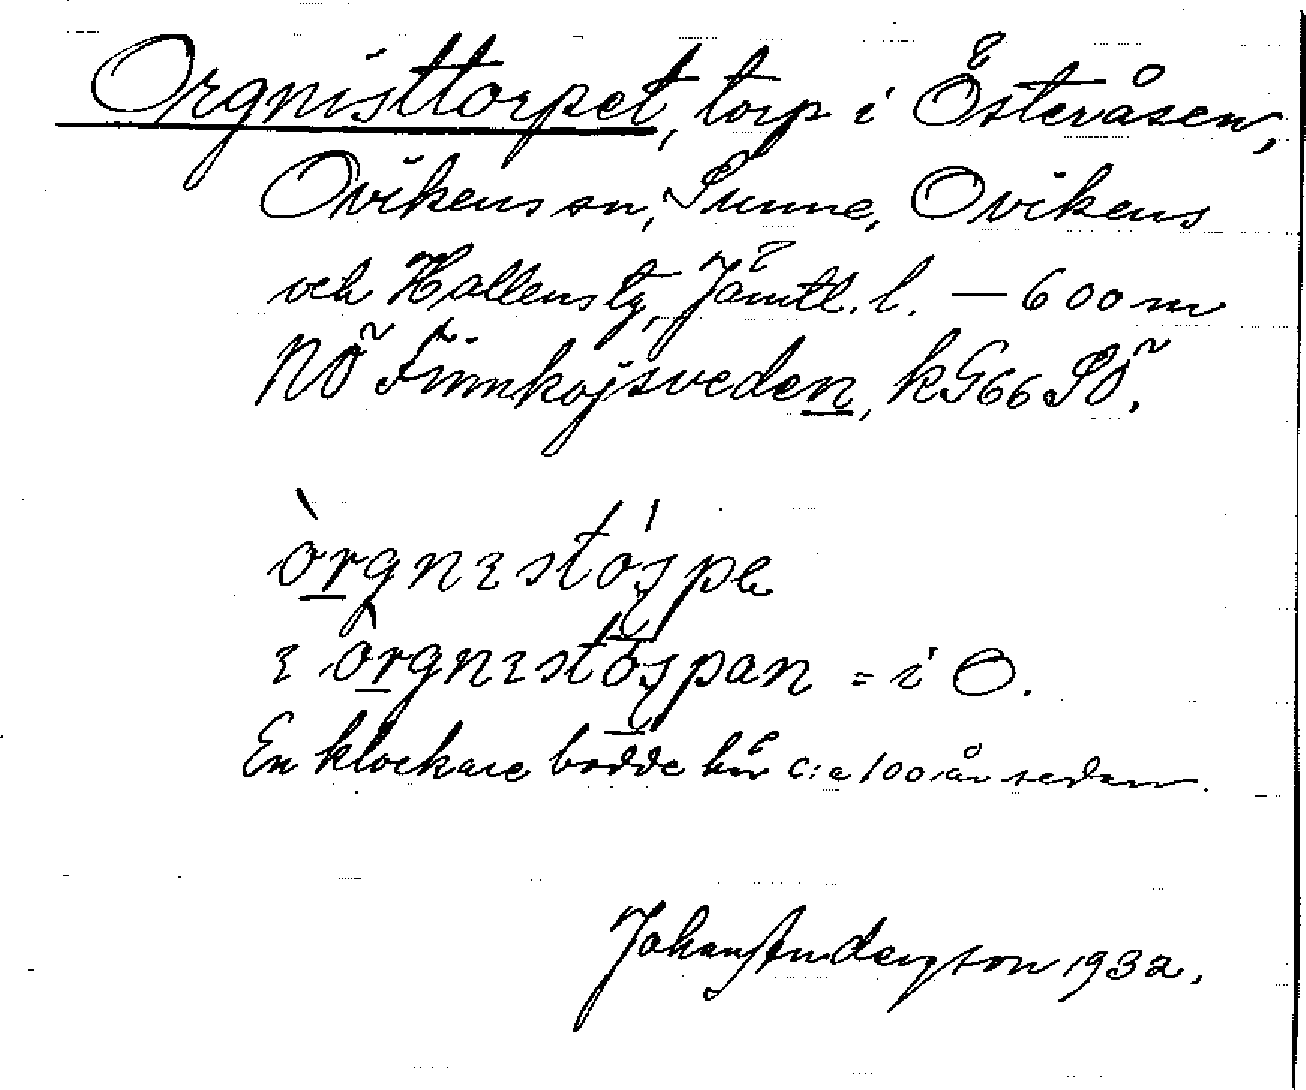 Orgnisttorpet, torp i Österåsen,
Ovikens sn, Sunne, Ovikens
och Hallens tg, Jämtl. l. — 600 m
NÖ Finnkojsveden, kG66 SÖ.
òrgnɪstóʂpe
ɪ òrgnɪstóʂpan = i O.
En klockare bodde här c:a 100 år sedan.
Johan Anderson 1932.